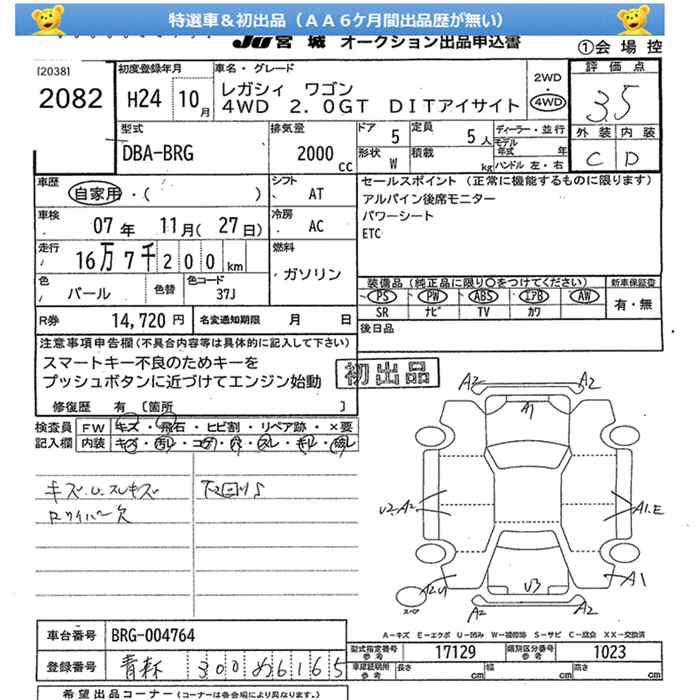 特選車&初出品(AA6ケ月間出品歴が無い)
JU宮城 オークション出品申込書
①会場控
[2038]
2082
初度登録年月
H24 10月
車名・グレード
レガシィ ワゴン
4WD 2.0GT DITアイサイト
2WD
・
4WD
評価点
3.5
外装 内装
C D
型式
DBA-BRG
排気量
2000 cc
ドア 5
定員 5人
形状 W
積載 kg
ディーラー・並行
モデル年式 年
ハンドル 左・右
車歴
自家用・( )
シフト
AT
車検
07年 11月(27日)
冷房
AC
走行
16万7千200km
燃料
ガソリン
色
パール
色替
色コード
37J
R券 14,720円
名変通知期限 月 日
セールスポイント(正常に機能するものに限ります)
アルパイン後席モニター
パワーシート
ETC
装備品(純正品に限り○をつけてください)
PS PW ABS エアB AW
SR ナビ TV カワ
新車保証書
有・無
後日品
注意事項申告欄(不具合内容等は具体的に記入して下さい)
スマートキー不良のためキーを
プッシュボタンに近づけてエンジン始動
初出品
修復歴 有[箇所 ]
検査員記入欄
FW キズ・飛石・ヒビ割・リペア跡・×要
内装 キズ・汚れ・コゲ・穴・スレ・キレ・破レ
キズ.U.スレキズ
下回りS
Rワイパー欠
A2 A2
A1
U2.A2
A1.E
U3
A2 A2
A1
スペア
A-キズ E-エクボ U-凹み W-補修跡 S-サビ C-腐食 XX-交換済
車台番号 BRG-004764
登録番号
300 め6165
型式指定番号 参考 17129
類別区分番号 参考 1023
車庫証明用 参考 長さ cm 幅 cm 高さ cm
希望出品コーナー(コーナーは各会場により異なります。)